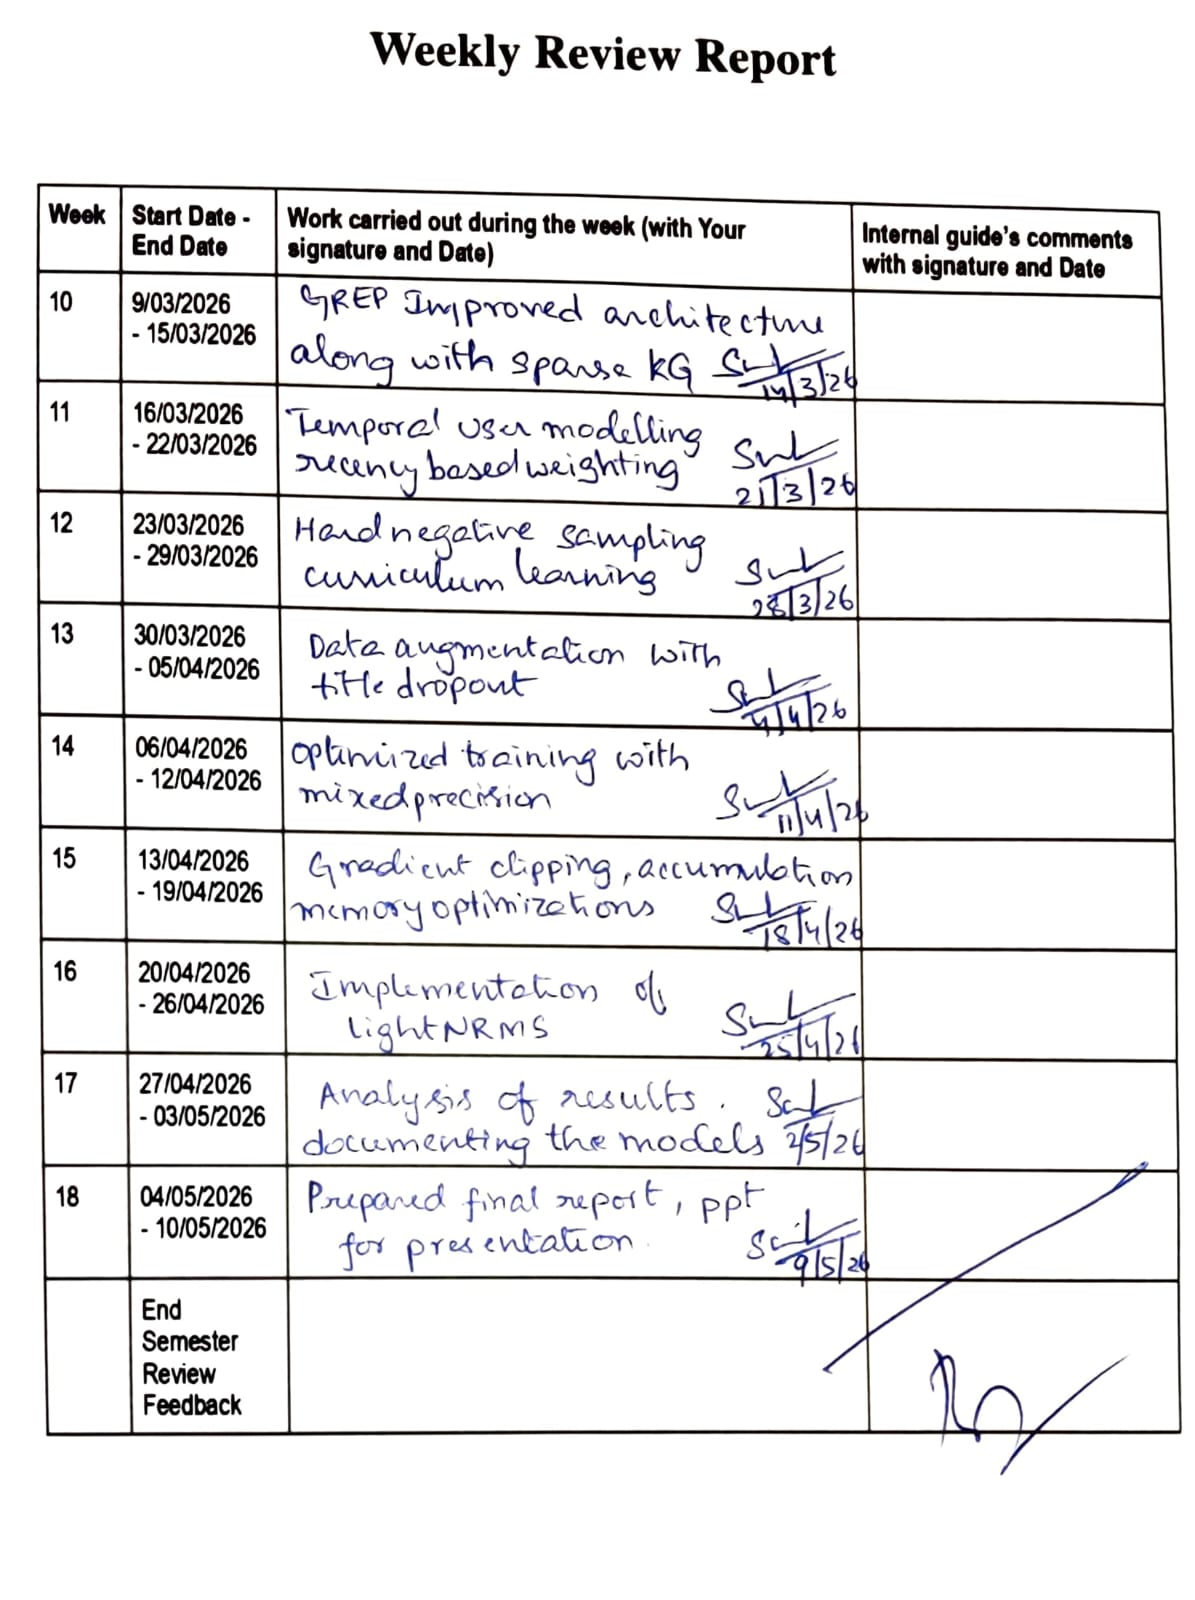 Weekly Review Report
Week
Start Date -
End Date
Work carried out during the week (with Your
signature and Date)
Internal guide's comments
with signature and Date
10
9/03/2026
- 15/03/2026
GREP Improved architecture
along with sparse KG
14/3/26
11
16/03/2026
- 22/03/2026
Temporal user modelling
recency based weighting
21/3/26
12
23/03/2026
- 29/03/2026
Hard negative sampling
curriculum learning
28/3/26
13
30/03/2026
- 05/04/2026
Data augmentation with
title dropout
4/4/26
14
06/04/2026
- 12/04/2026
optimized training with
mixed precision
11/4/26
15
13/04/2026
- 19/04/2026
Gradient clipping, accumulation
memory optimizations
18/4/26
16
20/04/2026
- 26/04/2026
Implementation of
lightNRMS
25/4/26
17
27/04/2026
- 03/05/2026
Analysis of results.
documenting the models 2/5/26
18
04/05/2026
- 10/05/2026
Prepared final report, ppt
for presentation.
9/5/26
End
Semester
Review
Feedback